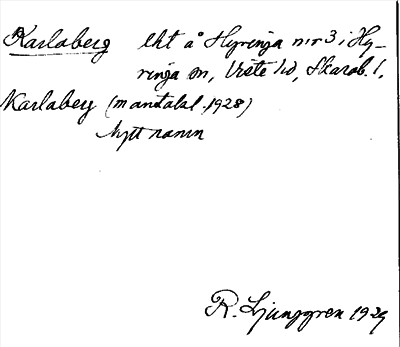 Karlaberg lht å Hyringa nr 3 i Hy-
ringa sn, Viste hd, Skarab. l.
Karlaberg (mantalsl. 1928)
Nytt namn
R. Ljunggren 1929